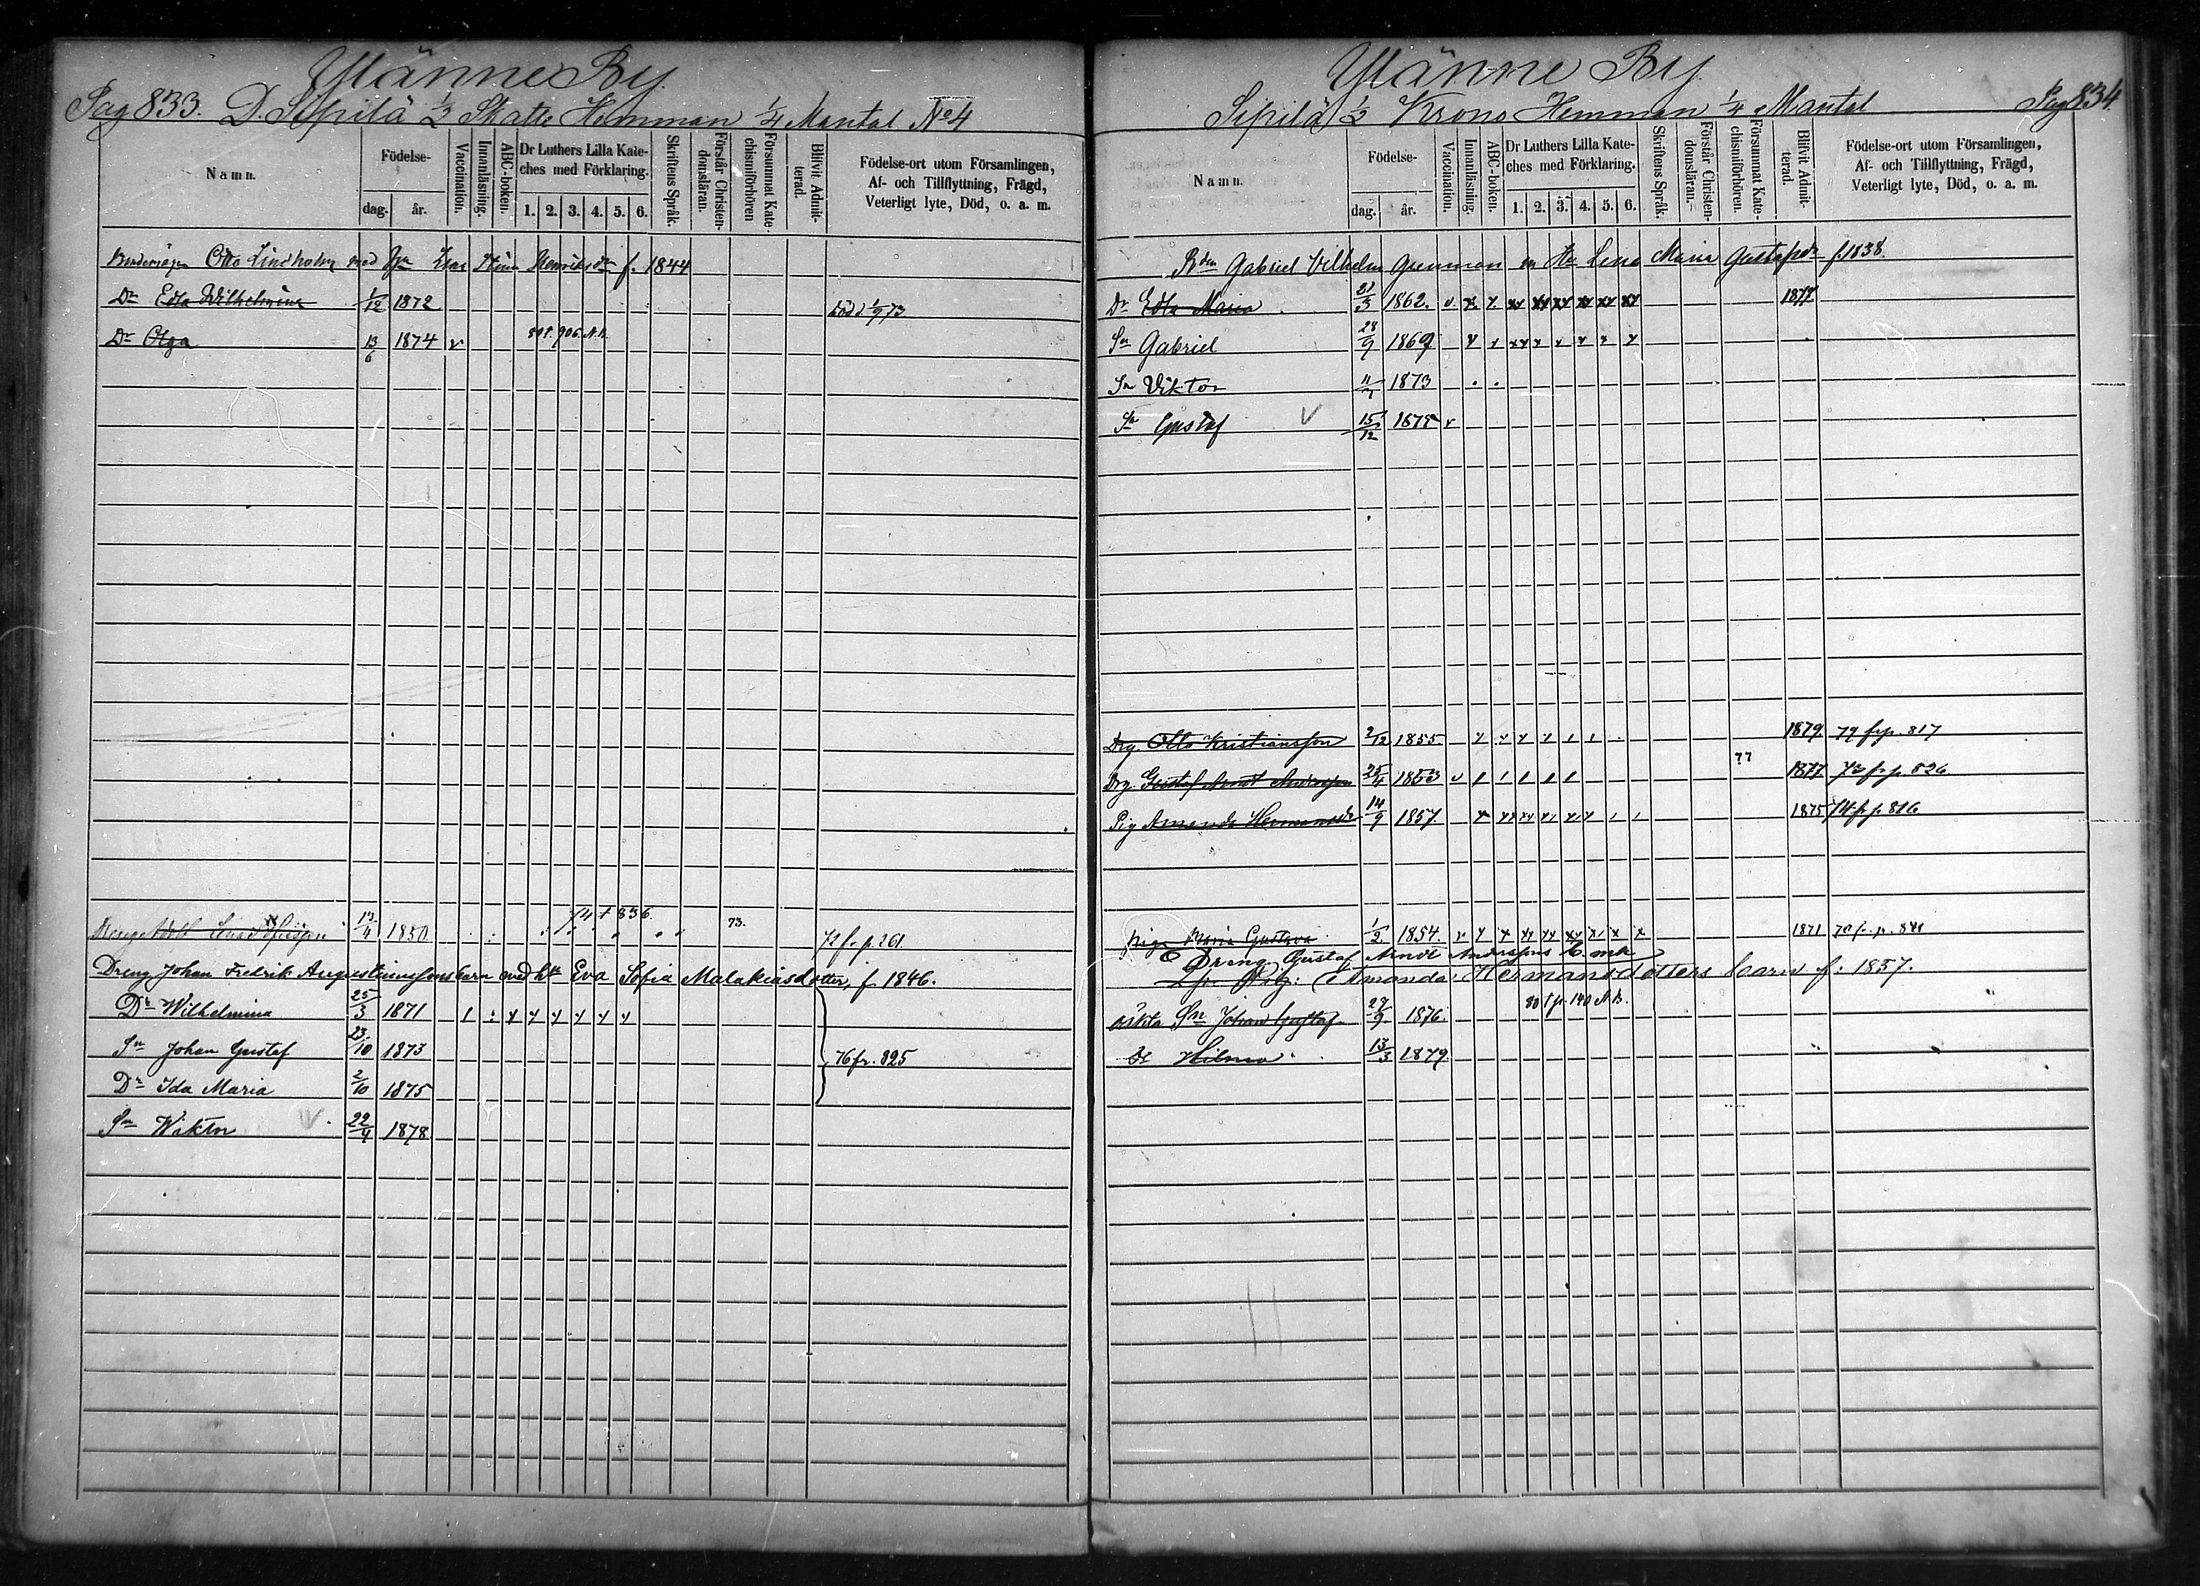 Yläne By.
Pag 833. D. Sipilä 1/2 Skatte Hemman 1/4 Mantal No 4
Namn.
Födelse-
dag. år.
Vaccination.
Innanläsning.
ABC-boken.
Dr Luthers Lilla Kate-
ches med Förklaring.
1. 2. 3. 4. 5. 6.
Skriftens Språk.
Förstår Christen-
domsläran.
Försummat Kate-
chismiförhören
Blifvit Admit-
terad.
Födelse-ort utom Församlingen,
Af- och Tillflyttning, Frägd,
Veterligt lyte, Död, o. a. m.
Otto Lindholm med Henriksdr f. 1844
Dr Edla Wilhelmina 1/12 1872 Död 1/9 73
Dr Olga 13/6 1874 v
74 t 836.
13/4 1850 73. 72 f. p. 261
Dreng Johan Fredrik Augustinussons barn med h. Eva Sofia Malakiasdotter, f. 1846.
Dr Wilhelmina 25/3 1871
Sn Johan Gustaf 23/10 1873 76 fr. 825
Dr Ida Maria 2/10 1875
Sn Wiktor 22/4 1878
Yläne By.
Sipilä 1/2 Krono Hemman 1/4 Mantal Pag 834
Namn.
Födelse-
dag. år.
Vaccination.
Innanläsning.
ABC-boken.
Dr Luthers Lilla Kate-
ches med Förklaring.
1. 2. 3. 4. 5. 6.
Skriftens Språk.
Förstår Christen-
domsläran.
Försummat Kate-
chismiförhören.
Blifvit Admit-
terad.
Födelse-ort utom Församlingen,
Af- och Tillflyttning, Frägd,
Veterligt lyte, Död, o. a. m.
Bdn Gabriel Vilhelm Lena Maria Gustafsdr f. 1838.
Dr Edla Maria 21/3 1862. v 1877
Sn Gabriel 28/9 1869
Sn Viktor 11/7 1873
Sn Gustaf 15/12 1875 v
Drg. Otto Kristiansson 2/12 1855 1879 79 frp. 817
Drg. Gustaf Arndt Andersson 25/4 1853 v 77 1877 72 fr p. 826
Pig Amanda Hermansdr 14/9 1857 1875 74 f p 816
Piga Maria Gustava 1/2 1854.
1871
Dreng Gustaf Arndt Anderssons
Pig. Amanda Hermansdotters barn f. 1857.
oäkta Sn Johan Gustaf 27/9 1876. 80 t p. 140 A.B.
Hilma 13/3 1879